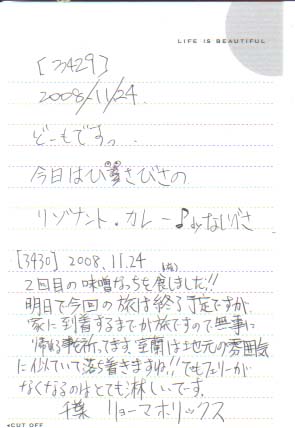 LIFE IS BEAUTIFUL
[3429]
2008/11/24.
どーもですっ
今日はひさびさの
リゾナント・カレー♪
[3430] 2008.11.24
2回目の味噌なっちも食しました!!
明日で今回の旅は終了予定ですが
家に到着するまでが旅ですので無事に
帰れる事祈ってます。室蘭は地元の雰囲気
に似ていて落ち着きますね!!でもフェリーが
なくなるのはとても淋しいでーす。
千葉 リョーマホリックス
◂CUT OFF